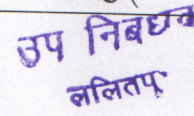 उप निबधन
ललितपु